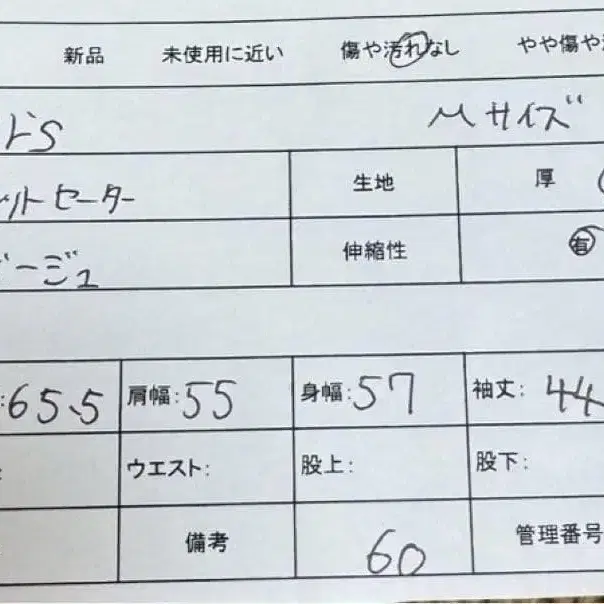 新品 未使用に近い 傷や汚れなし やや傷や
ドS Mサイズ
ットセーター 生地 厚
ベージュ 伸縮性 有
:65.5 肩幅:55 身幅:57 袖丈:44
: ウエスト: 股上: 股下:
備考 60 管理番号